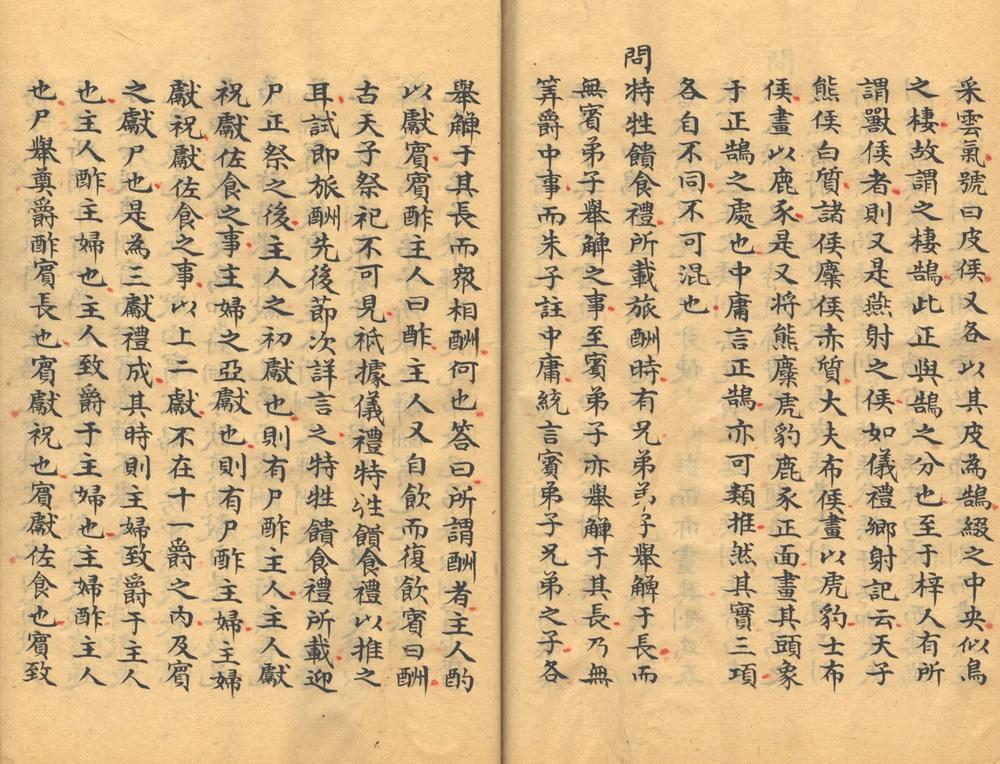 采雲氣號曰皮侯又各以其皮為鵠綴之中央似鳥
之棲故謂之棲鵠此正與鵠之分也至于梓人有所
謂獸侯者則又是燕射之侯如儀禮鄉射記云天子
熊侯白質諸侯麋侯赤質大夫布侯畫以虎豹士布
侯畫以鹿豕是又將熊麋虎豹鹿豕正面畫其頭象
于正鵠之處也中庸言正鵠亦可類推然其實三項
各自不同不可混也
問特牲饋食禮所載旅酬時有兄弟弟子舉觶于長而
無賓弟子舉觶之事至賓弟子亦舉觶于其長乃無
筭爵中事而朱子註中庸統言賓弟子兄弟之子各
舉觶于其長而眾相酬何也答曰所謂酬者主人酌
以獻賓賓酢主人曰酢主人又自飲而復飲賓曰酬
古天子祭祀不可見祗據儀禮特牲饋食禮以推之
耳試即旅酬先後節次詳言之特牲饋食禮所載迎
尸正祭之後主人之初獻也則有尸酢主人主人獻
祝獻佐食之事主婦之亞獻也則有尸酢主婦主婦
獻祝獻佐食之事以上二獻不在十一爵之內及賓
之獻尸也是為三獻禮成其時則主婦致爵于主人
也主人酢主婦也主人致爵于主婦也主婦酢主人
也尸舉奠爵酢賓長也賓獻祝也賓獻佐食也賓致